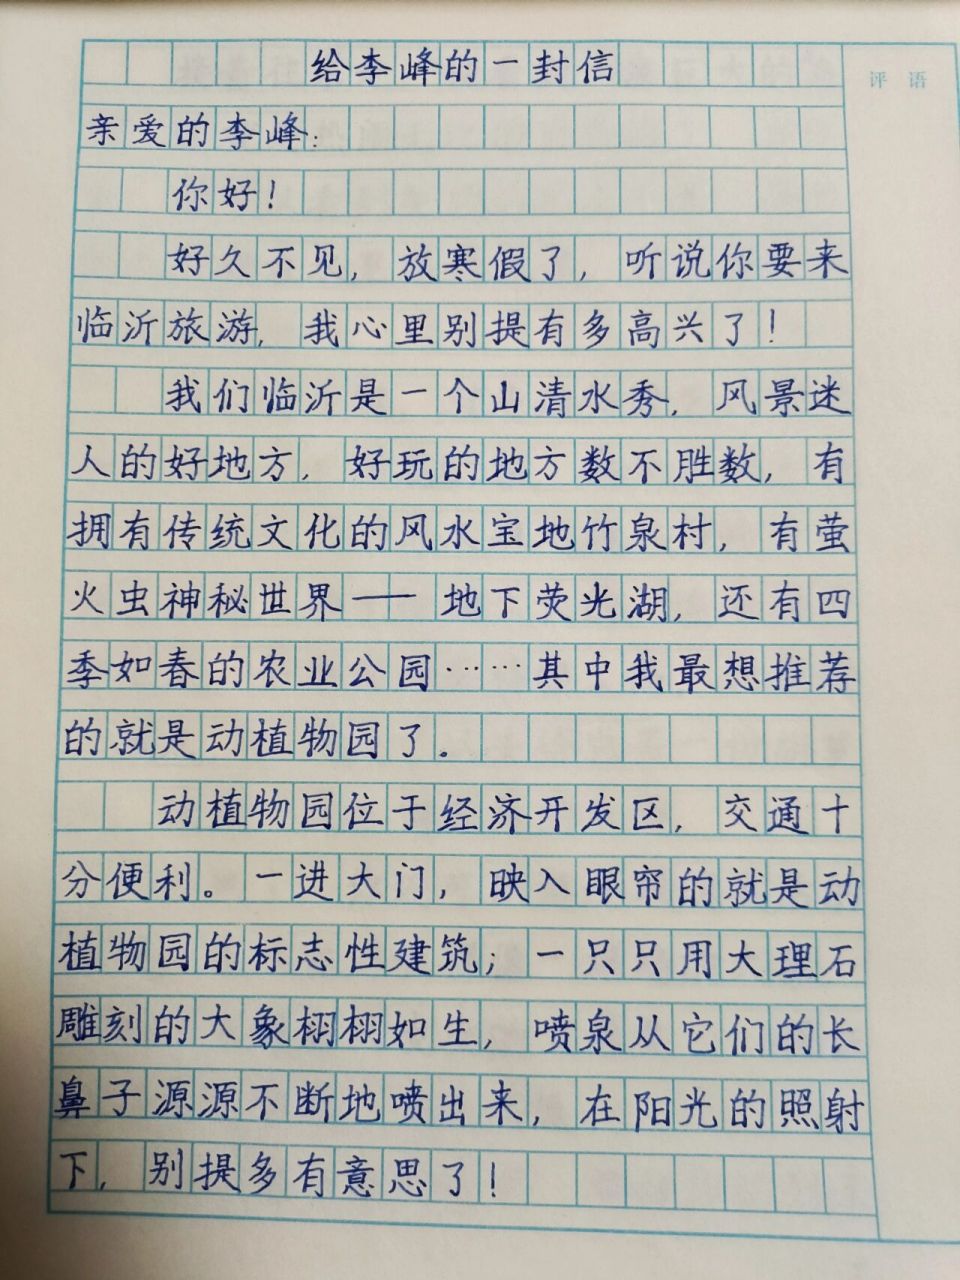 给李峰的一封信
评语
亲爱的李峰:
你好!
好久不见，放寒假了，听说你要来
临沂旅游，我心里别提有多高兴了!
我们临沂是一个山清水秀，风景迷
人的好地方，好玩的地方数不胜数，有
拥有传统文化的风水宝地竹泉村，有萤
火虫神秘世界——地下荧光湖，还有四
季如春的农业公园……其中我最想推荐
的就是动植物园了。
动植物园位于经济开发区，交通十
分便利。一进大门，映入眼帘的就是动
植物园的标志性建筑；一只只用大理石
雕刻的大象栩栩如生，喷泉从它们的长
鼻子源源不断地喷出来，在阳光的照射
下，别提多有意思了!